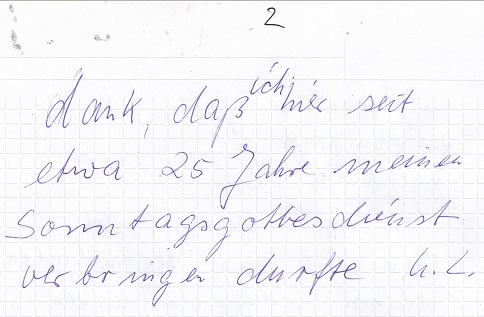 2
dank, daß ich hier seit
etwa 25 Jahre meinen
Sonntagsgottesdienst
verbringen durfte h. L.